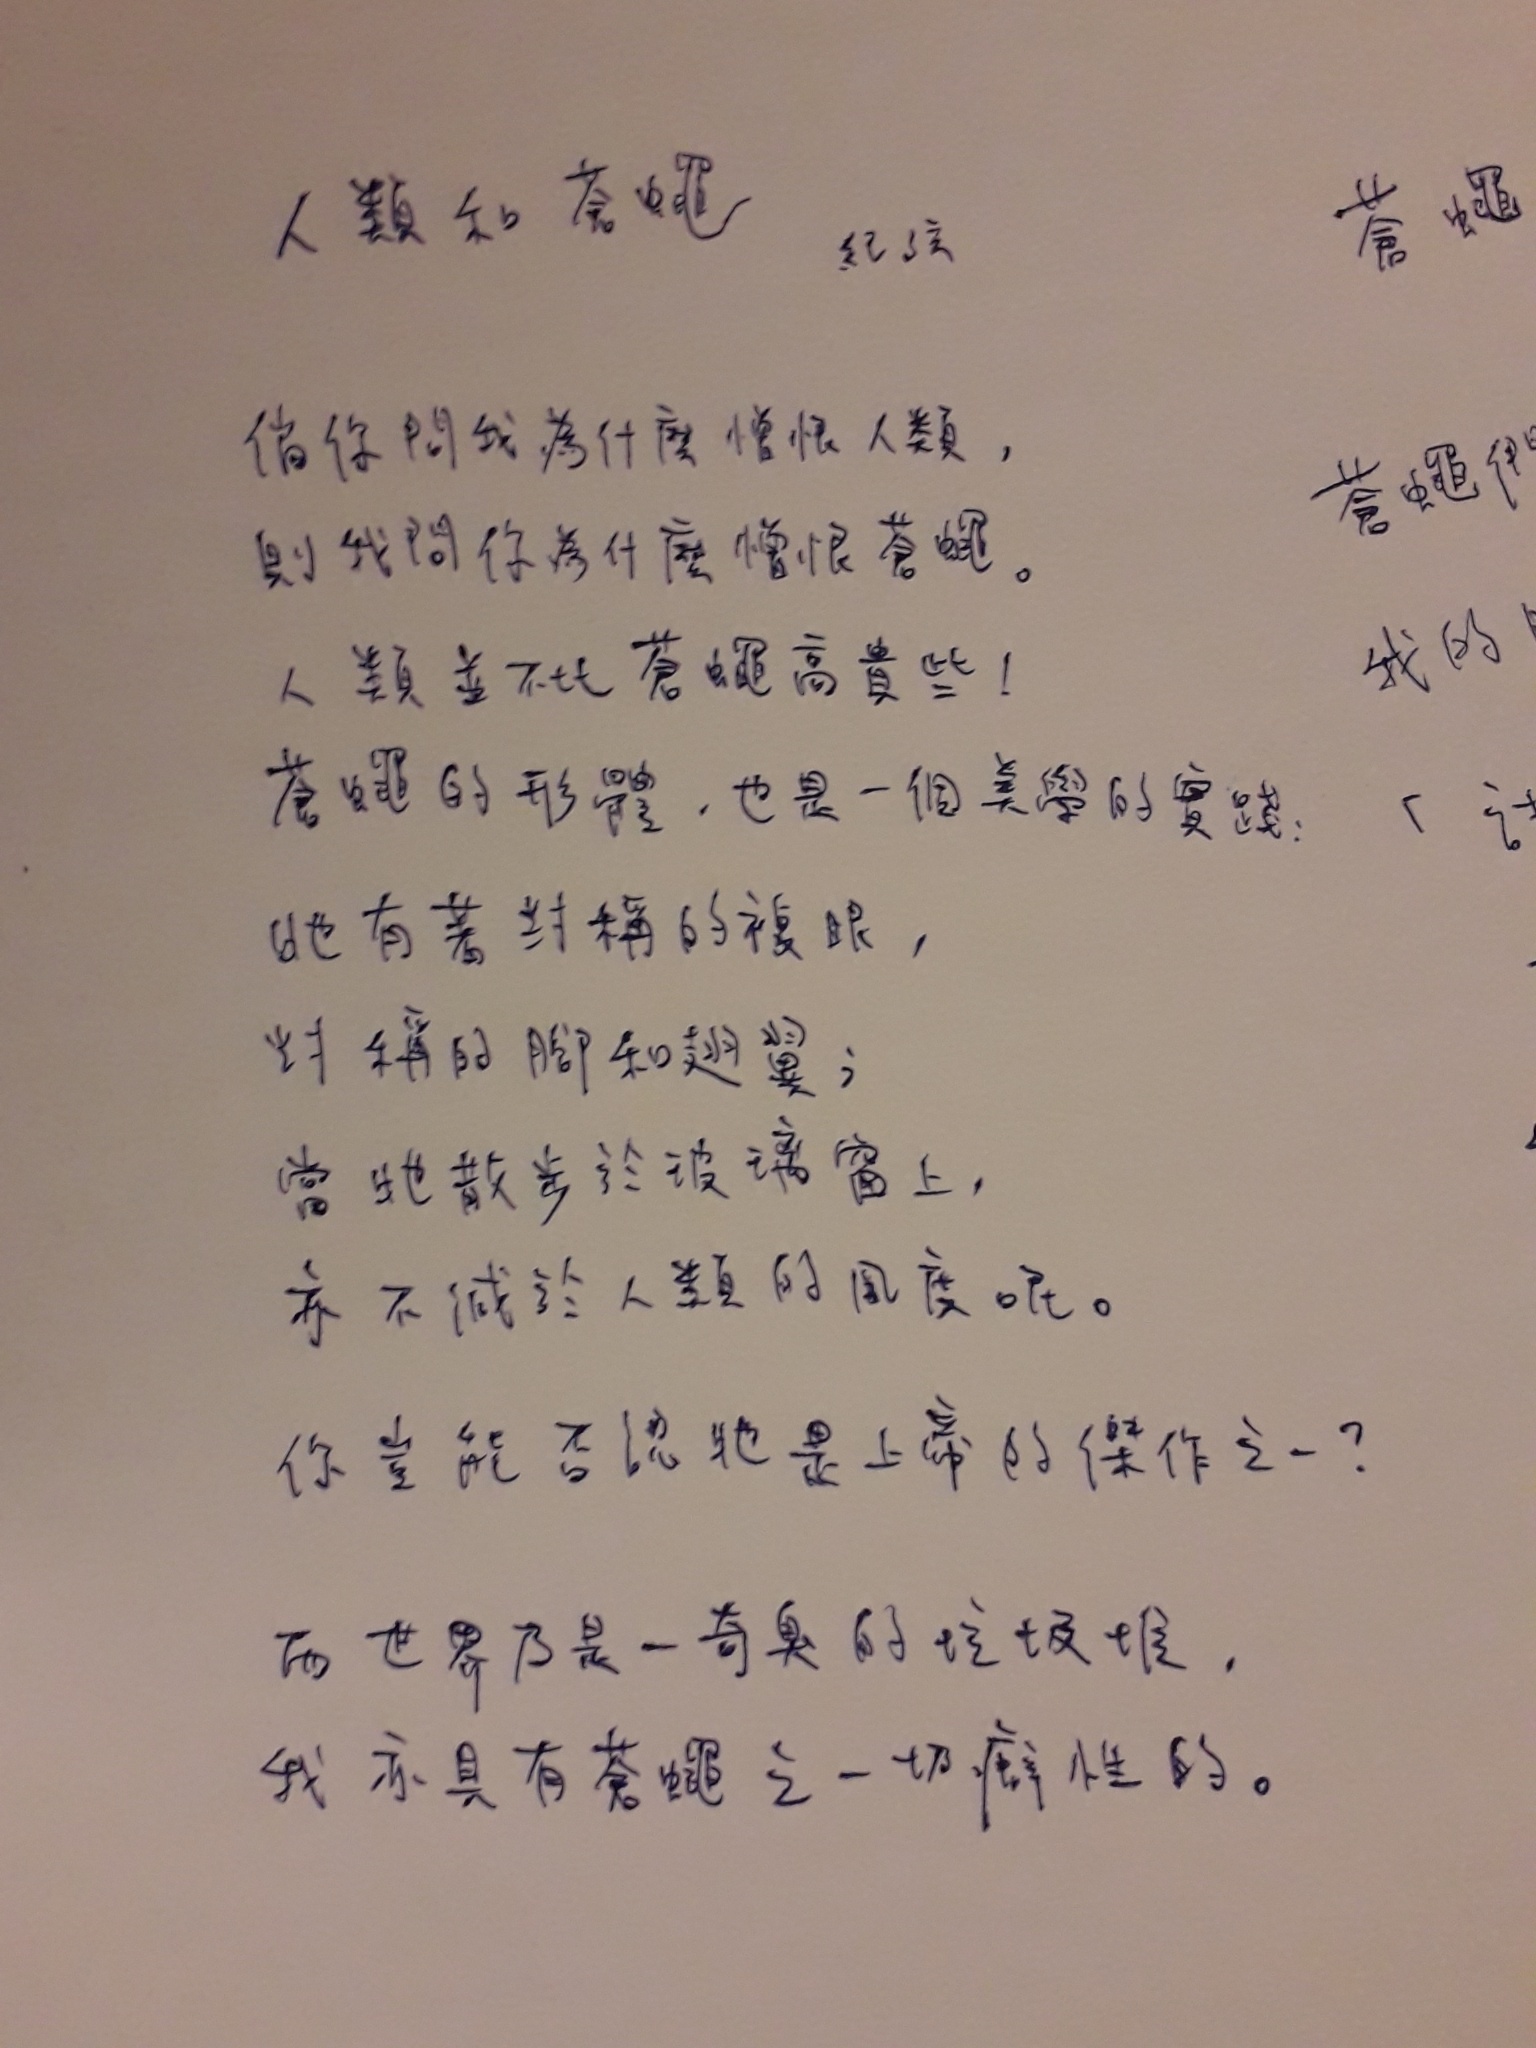 人類和蒼蠅
紀弦
倘你問我為什麼憎恨人類，
則我問你為什麼憎恨蒼蠅。
人類並不比蒼蠅高貴些！
蒼蠅的形體，也是一個美學的實踐：
牠有著對稱的複眼，
對稱的腳和翅翼；
當牠散步於玻璃窗上，
亦不減於人類的風度呢。
你豈能否認牠是上帝的傑作之一？
而世界乃是一奇臭的垃圾堆，
我亦具有蒼蠅之一切癖性的。
蒼蠅
蒼蠅們
我的
「